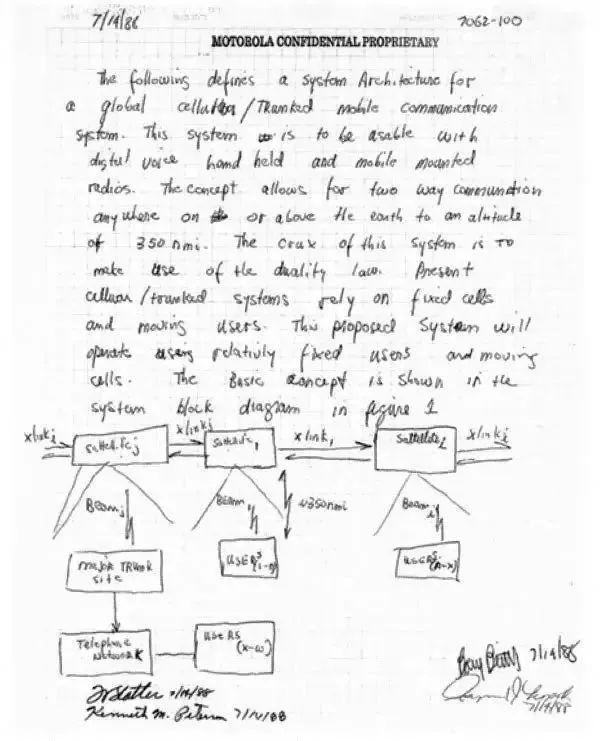 7/14/88 7062-100
MOTOROLA CONFIDENTIAL PROPRIETARY
The following defines a system Architecture for
a global cellular/Trunked mobile communication
system. This system is to be usable with
digital voice hand held and mobile mounted
radios. The concept allows for two way communition
anywhere on or above the earth to an altitude
of 350 nmi. The crux of this system is to
make use of the duality law. Present
celluar/trunked systems rely on fixed cells
and moving users. This proposed System will
operate using relativly fixed users and moving
cells. The Basic concept is shown in the
system block diagram in figure 1
xlink xlink xlink1 xlink
satellite j satellite1 Satellite
Beam Beam ~350nmi Beam
major Trunk site USERS (1-n) USERS
Telephone Network USERS
7/14/88
Kenneth M. Peterson 7/14/88
7/14/88
7/14/88